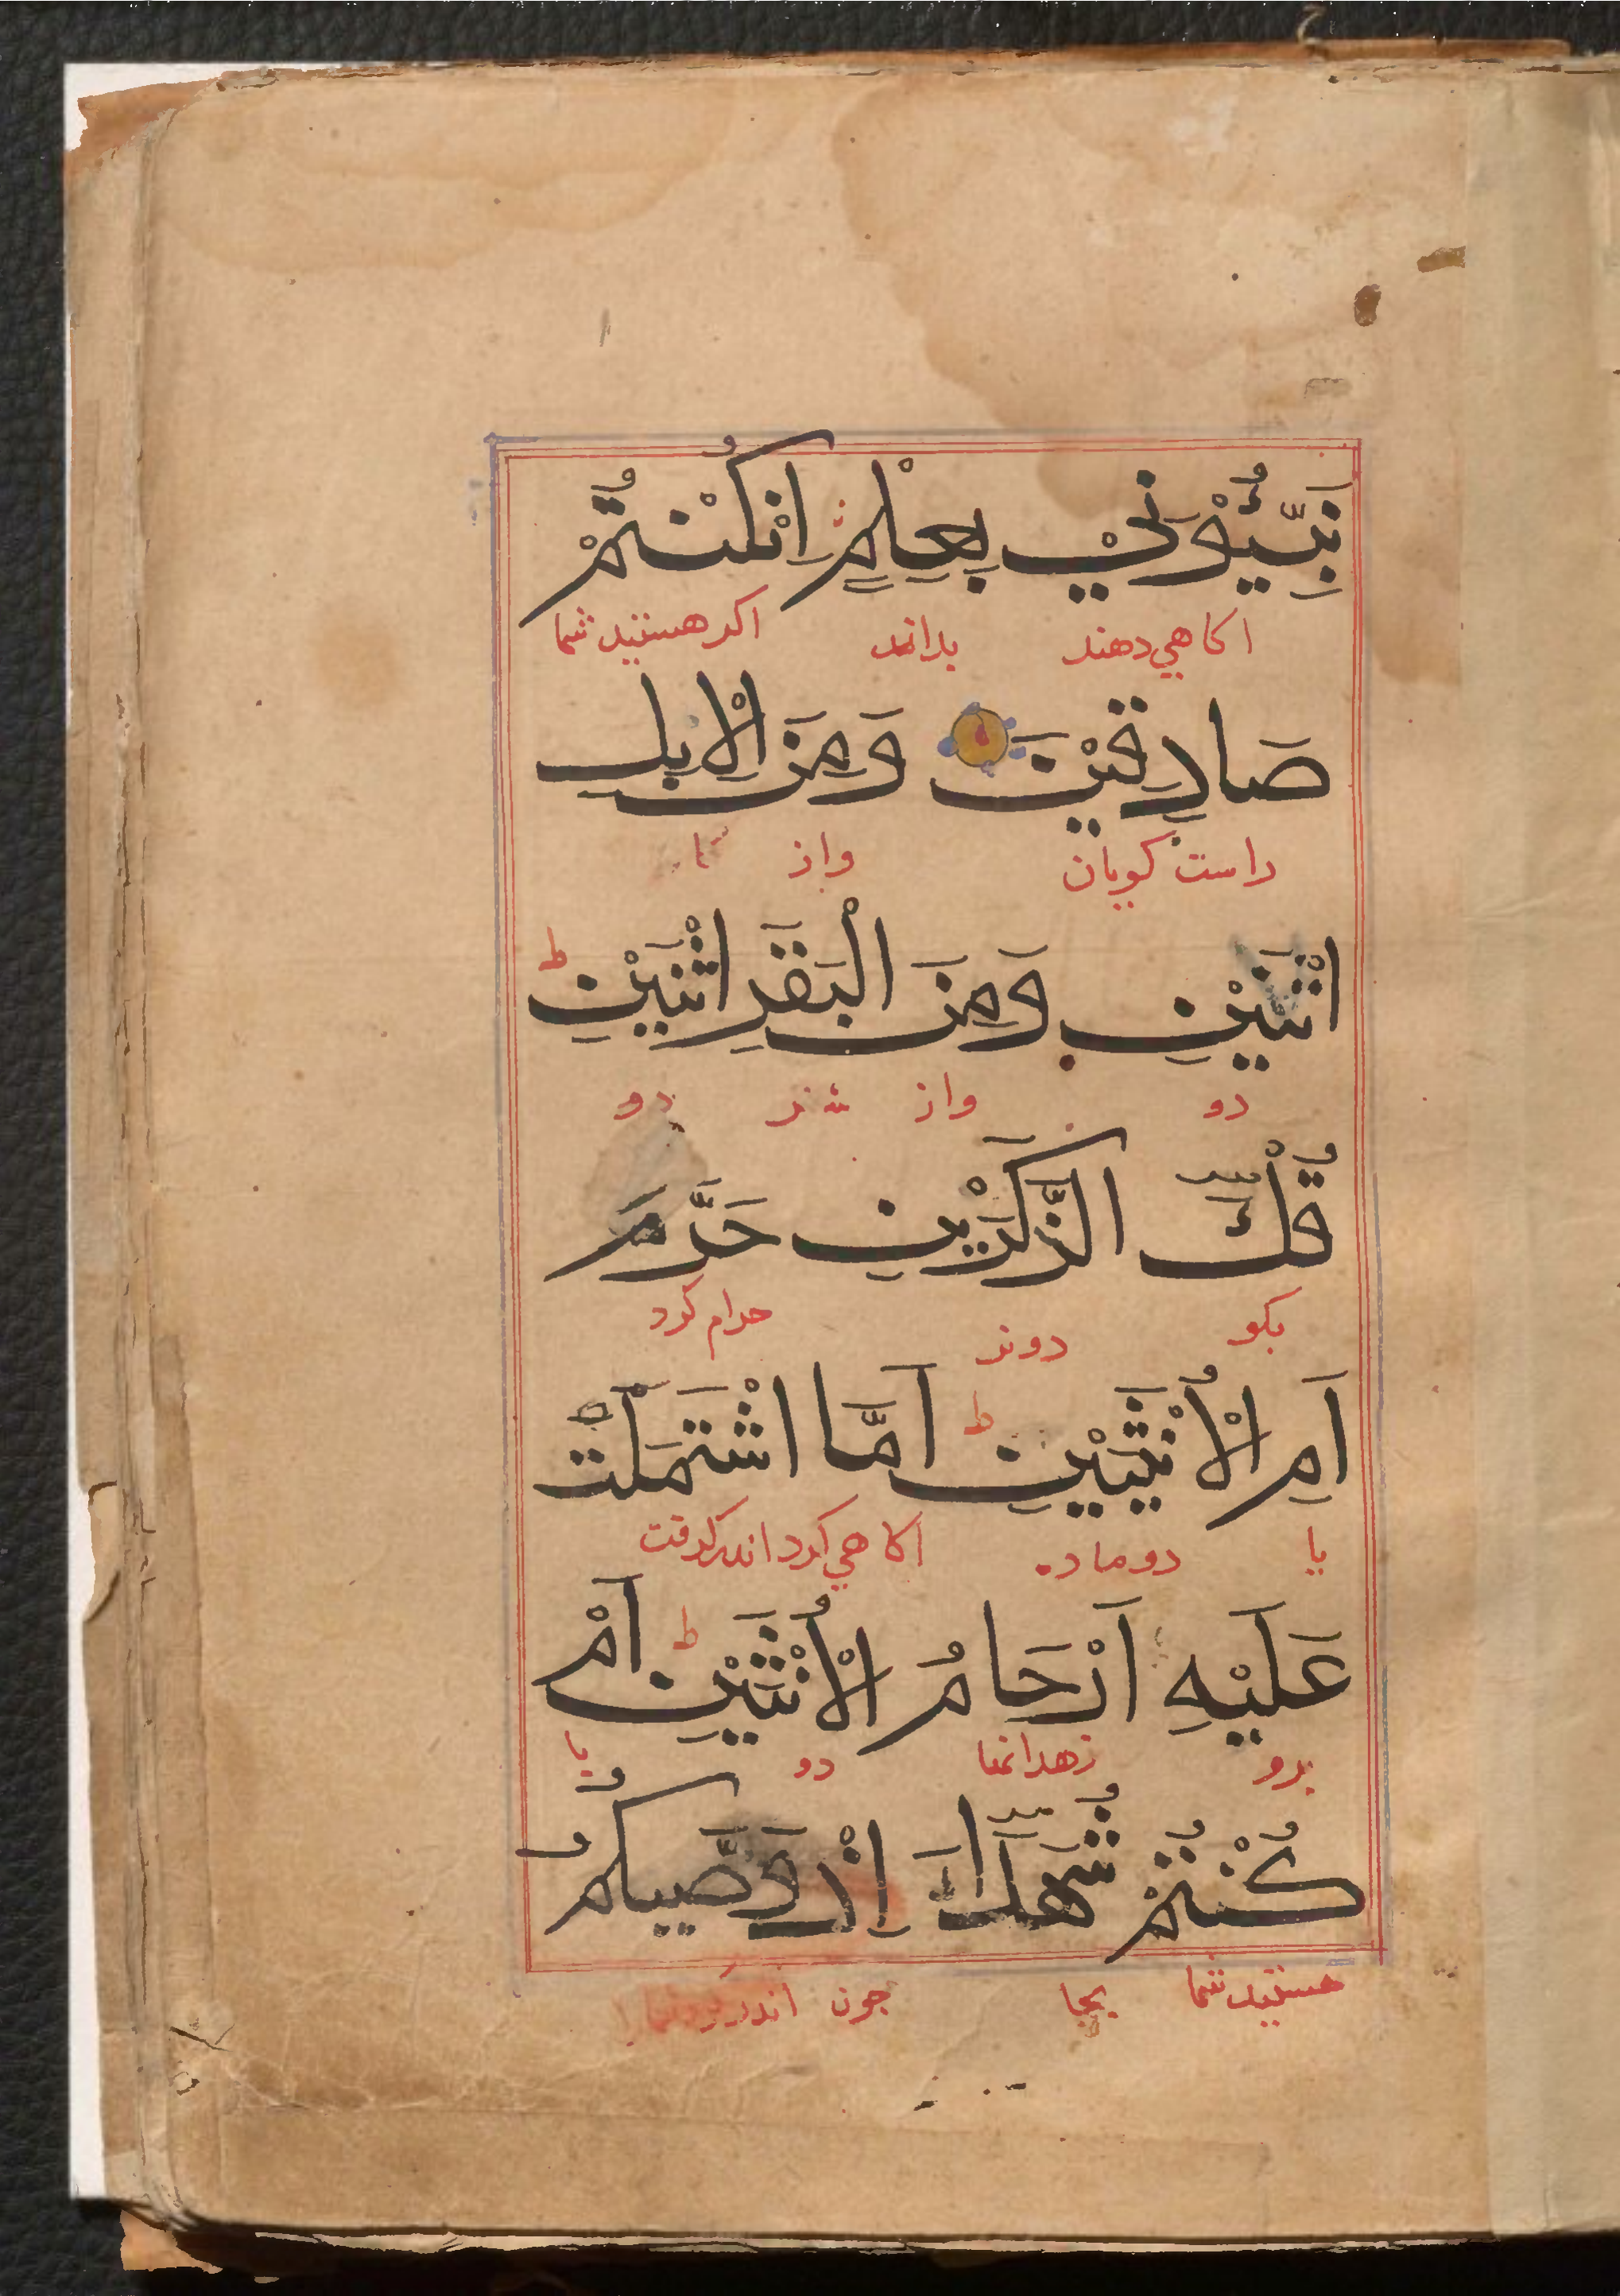 نَبِّئُوْنِيْ بِعِلْمٍ اِنْ كُنْتُمْ
اكاهي دهند بداند اكر هستيد شما
صَادِقِيْنَ وَمِنَ الْاِبِلِ
راست كويان واز
اثْنَيْنِ وَمِنَ الْبَقَرِ اثْنَيْنِ ط
دو واز دو
قُلْ ءٰۤالذَّكَرَيْنِ حَرَّمَ
بكو دونر حرام كرد
اَمِ الْاُنْثَيَيْنِ ط اَمَّا اشْتَمَلَتْ
يا دو ماده اكاهي كرد اندركرفت
عَلَيْهِ اَرْحَامُ الْاُنْثَيَيْنِ ط اَمْ
برو زهدانها دو يا
كُنْتُمْ شُهَدَآءَ اِذْ وَصّٰيكُمُ
هستيد شما بجا جون اندرز